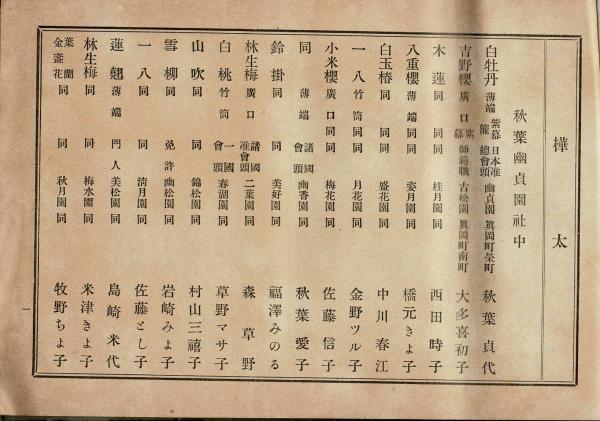 樺太
秋葉幽貞園社中
白牡丹 薄端 紫幕 籠 日本准總會頭 幽貞園 眞岡町榮町 秋葉貞代
吉野櫻 廣口 紫幕 師範職 古松園 眞岡町南町 大多喜初子
木蓮 同 同 同 桂月園 同 西田時子
八重櫻 薄端 同 同 姿月園 同 橋元きよ子
白玉椿 同 同 同 盛花園 同 中川春江
一八 竹筒 同 同 月花園 同 金野ツル子
小米櫻 廣口 同 同 梅花園 同 佐藤信子
同 薄端 諸國會頭 幽香園 同 秋葉愛子
鈴掛 同 同 美好園 同 福澤みのる
林生梅 廣口 諸國准會頭 二葉園 同 森草野
白桃 竹筒 一國會頭 春湖園 同 草野マサ子
山吹 同 同 錦松園 同 村山三禧子
雪柳 同 免許 幽松園 同 岩崎みよ子
一八 同 同 清月園 同 佐藤とし子
蓮翹 薄端 門人 美松園 同 島崎米代
林生梅 同 同 梅水園 同 米津きよ子
葉蘭 金盞花 同 同 秋月園 同 牧野ちよ子
一